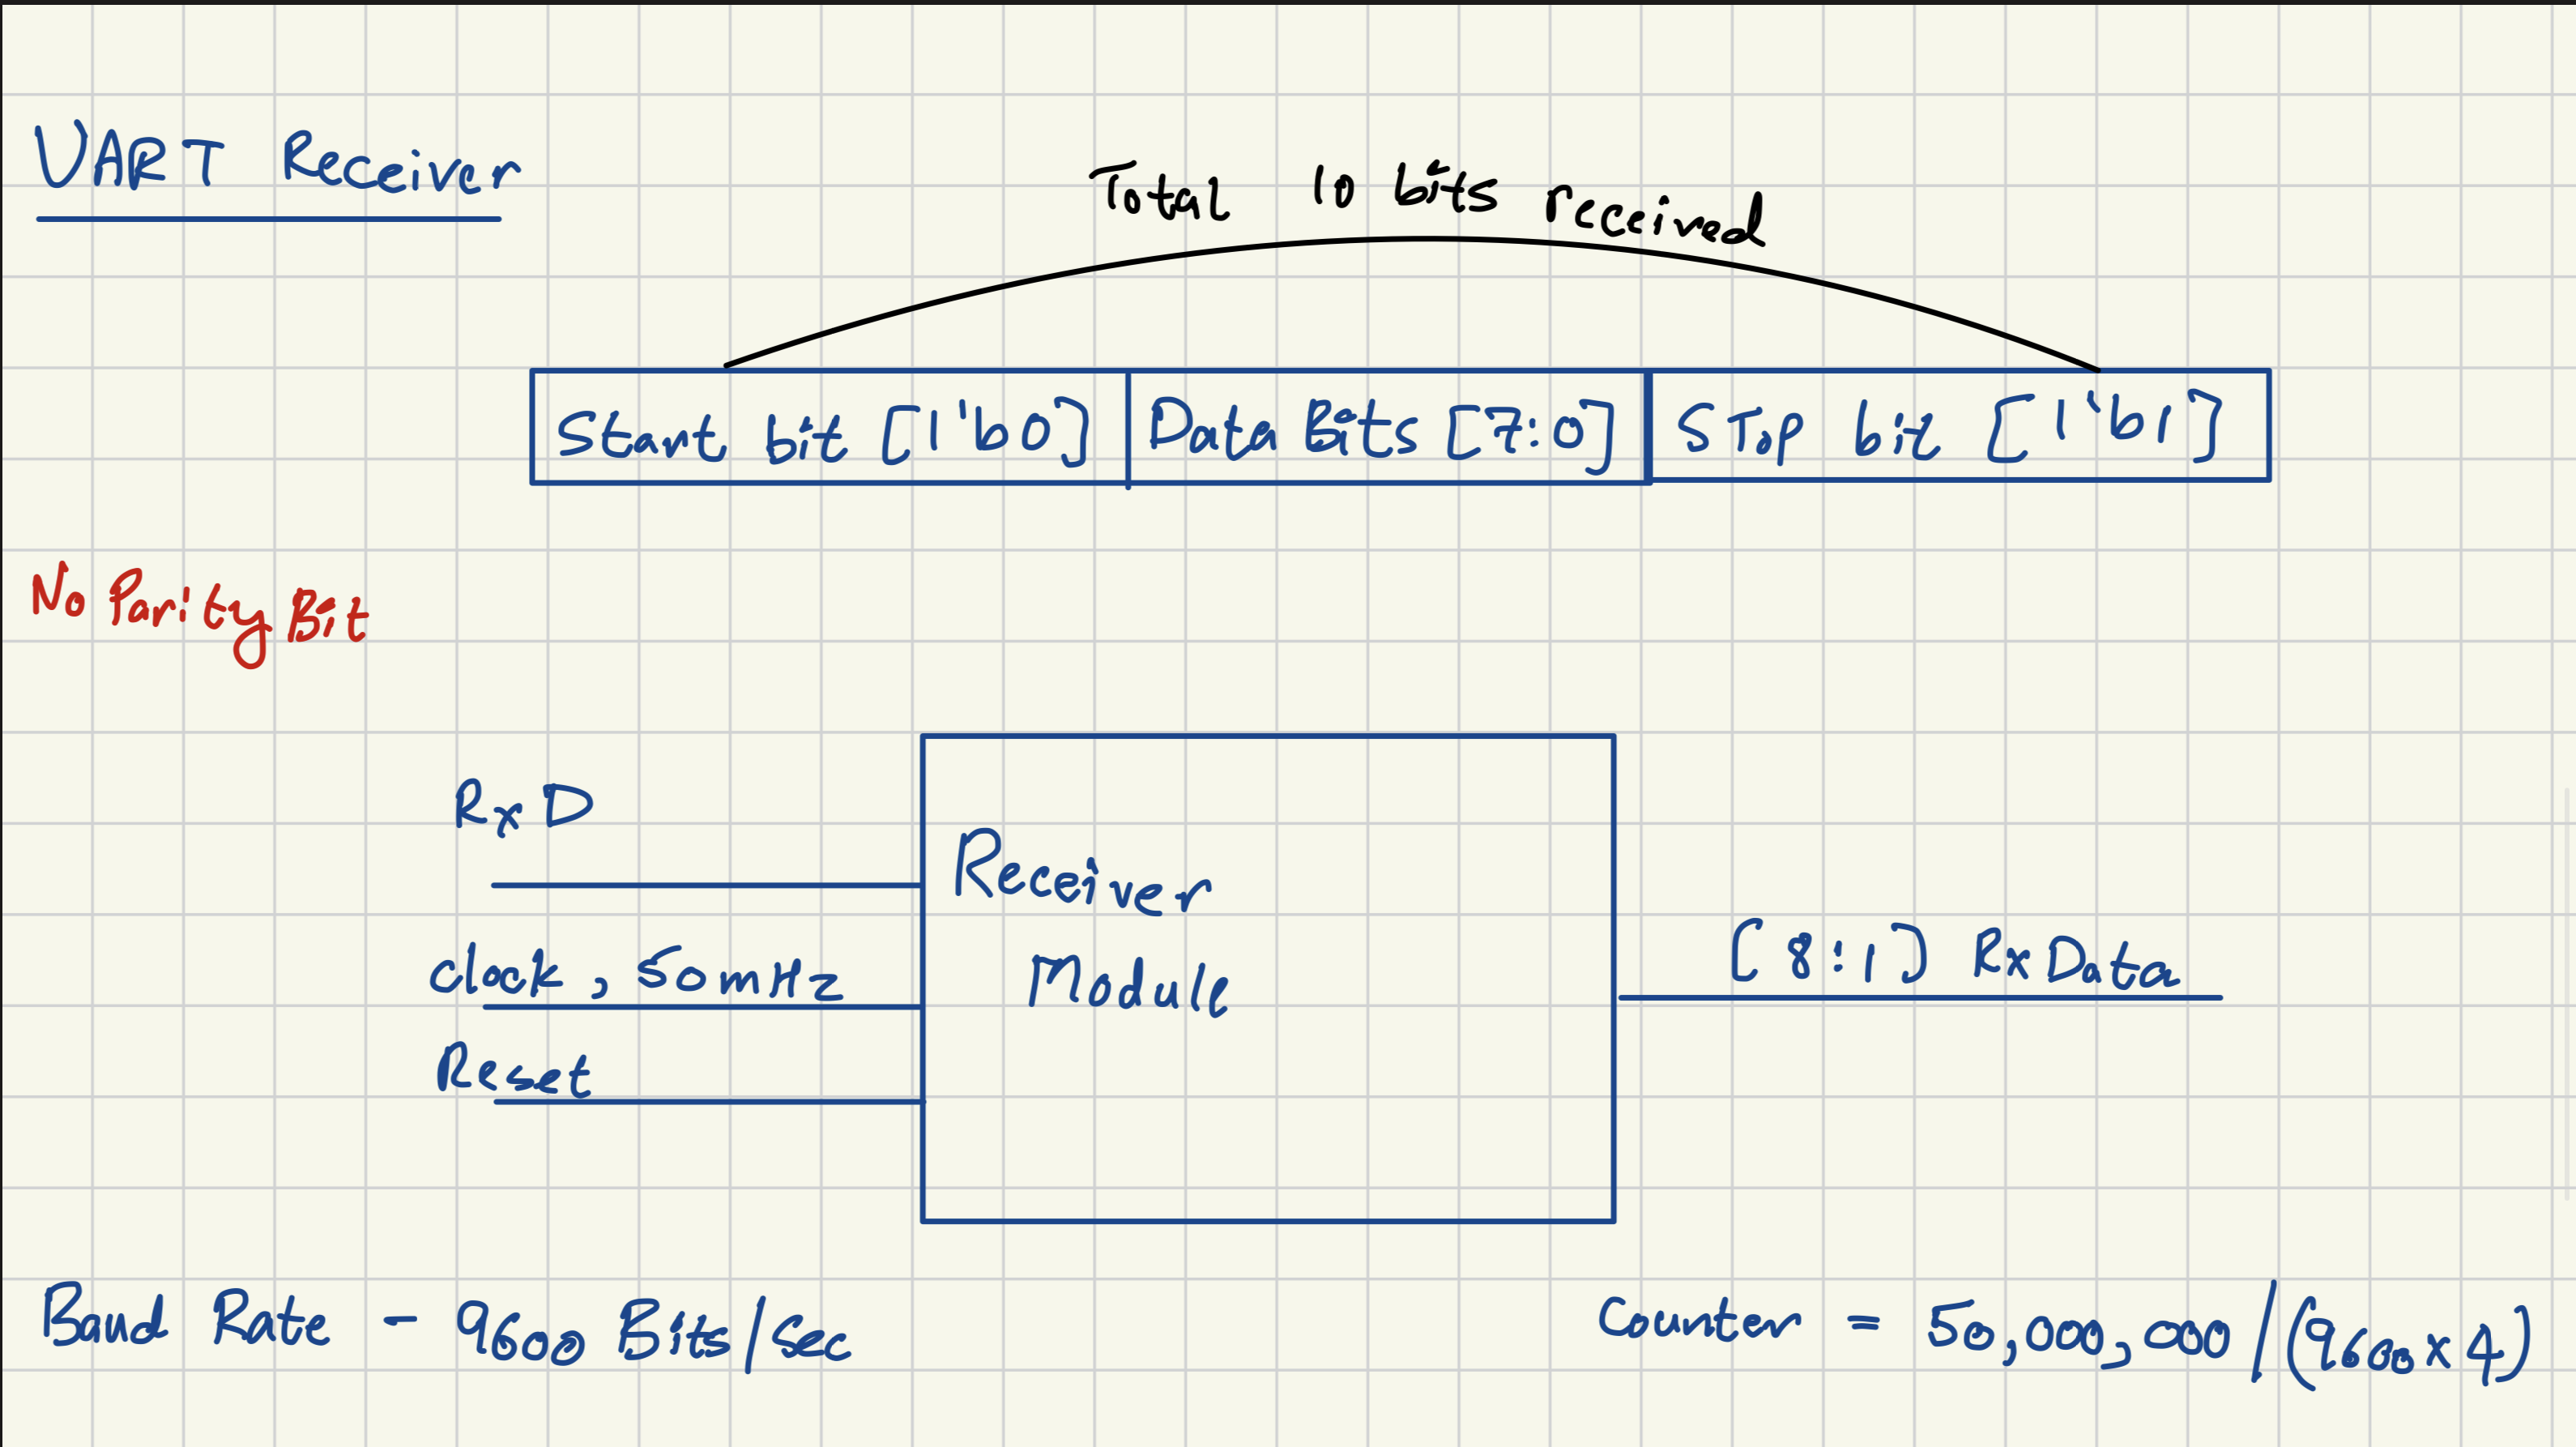 UART Receiver
Total 10 bits received
Start bit [1'b0] Data Bits [7:0] STop bit [1'b1]
No Parity Bit
RxD
Receiver
clock, 50mHz
Module
[8:1] RxData
Reset
Baud Rate - 9600 Bits/sec
Counter = 50,000,000/(9600x4)